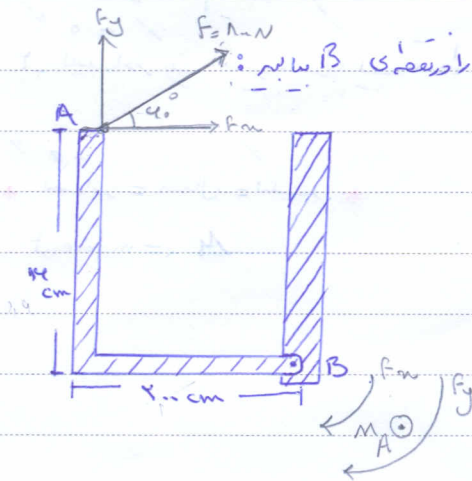 Fy
F=۸۰۰N
را در نقطه‌ی B بیابید:
A
۶۰°
Fx
cm
۲۰۰ cm
B
Fx
Fy
M A